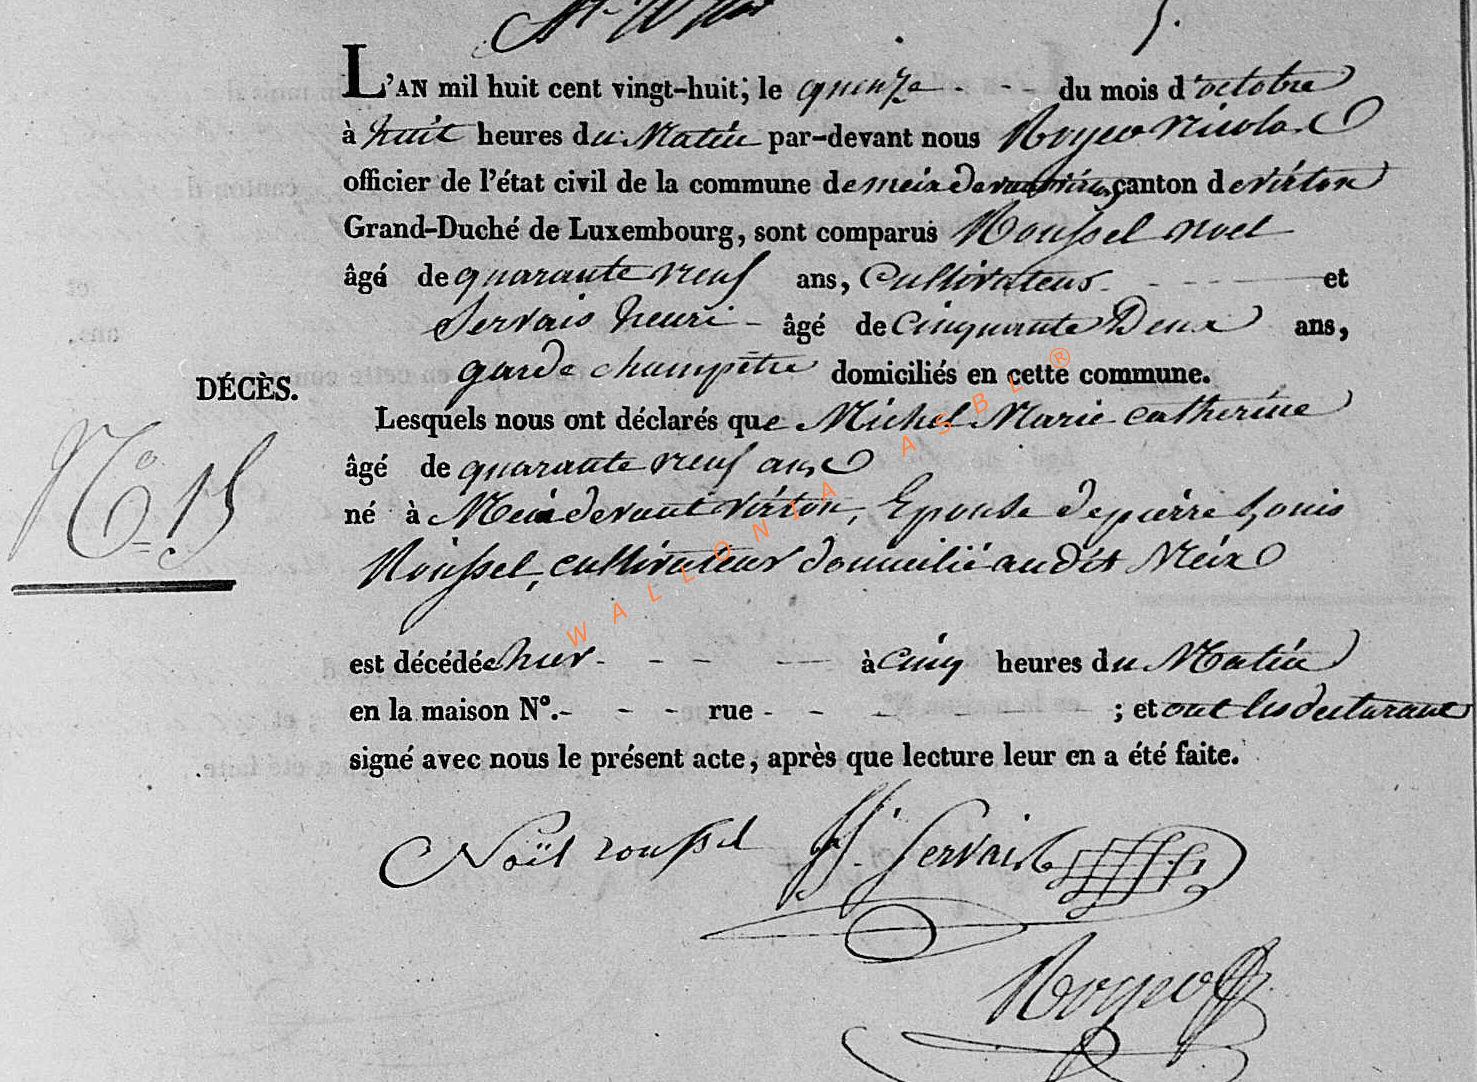 L'AN mil huit cent vingt-huit, le quinze du mois d'octobre
à huit heures du Matin par-devant nous Royer Nicolas
officier de l'état civil de la commune de meix devant virton canton de virton
Grand-Duché de Luxembourg, sont comparus Roussel noel
âgé de quarante neuf ans, Cultivateur et
Servais henri - âgé de Cinquante Deux ans,
garde champêtre domiciliés en cette commune.
DÉCÈS.
Lesquels nous ont déclarés que Michel Marie catherine
âgé de quarante neuf ans
N° 15
né à Meix devant virton, Epouse de pierre Louis
Roussel, cultivateur domicilié audit Meix
est décédée hier - - - à cinq heures du Matin
en la maison N°. - - - rue - - - - ; et ont les declarant
signé avec nous le présent acte, après que lecture leur en a été faite.
Noël roussel H. Servais
Royer
WALLONIA ASBL ®